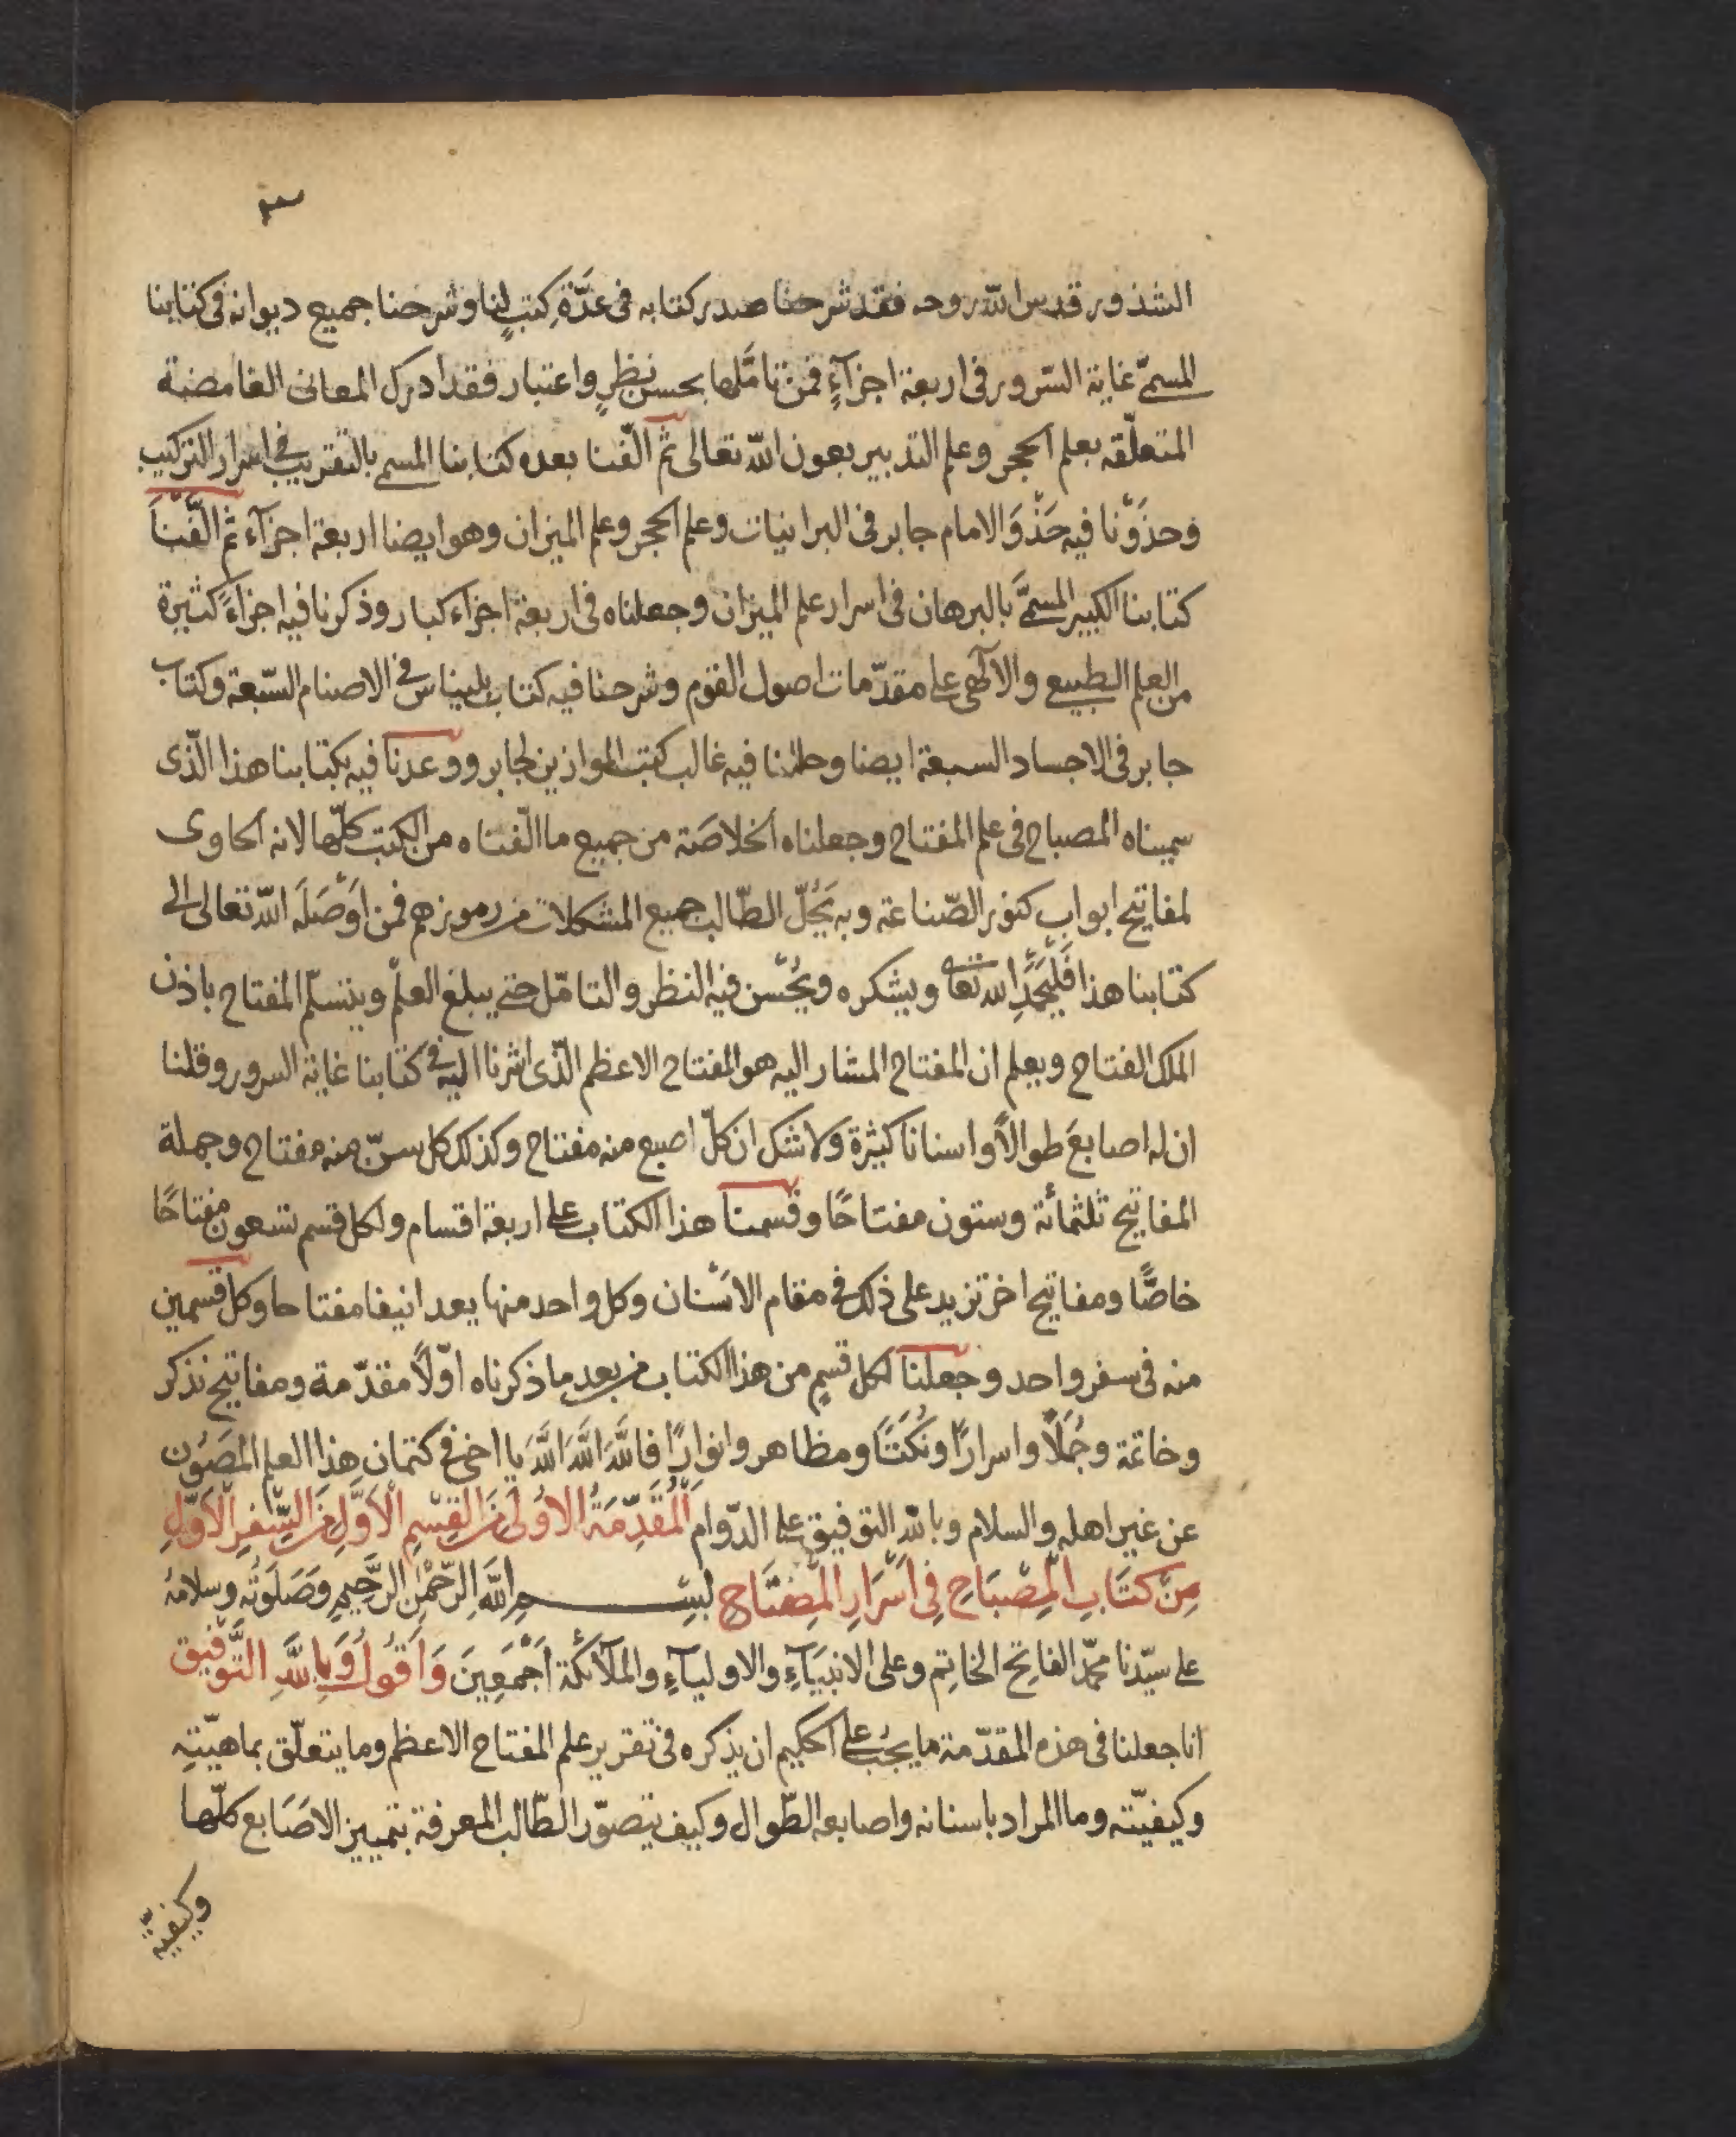 ٣
الشذور قدس الله روحه فقد شرحنا صدر كتابه فى عدَّةِ كتبٍ لنا وشرحنا جميع ديوانه فى كتابنا
المسمّى غاية السّرور فى اربعة اجزآءٍ فمن تامَّلها بحسن نظرٍ واعتبار فقد ادرك المعانى الغامضة
المتعلّقه بعلم الحجر وعلم التدبير بعون الله تعالى ثم الّفنا بعده كتابنا المسمى بالتقريب فى اسرار التركيب
وحذَوْنا فيه حَذْوَ الامام جابر فى البرانيات وعلم الحجر وعلم الميزان وهو ايضا اربعة اجزآء ثم الّفْنَا
كتابنا الكبير المسمَّى بالبرهان فى اسرار علم الميزان وجعلناه فى اربعة اجزاء كبار وذكرنا فيه اجزاءً كثيرة
من العلم الطبيعى والالٓهى على مقدّمات اصول القوم وشرحنا فيه كتاب بليناس فى الاصنام السّبعة وكتاب
جابر فى الاجساد السبعة ايضا وحللنا فيه غالب كتب الموازين لجابر ووعدنا فيه بكتابنا هذا الّذى
سميناه المصباح فى علم المفتاح وجعلناه الخلاصَة من جميع ما الّفناه من الكتب كلّها لانه الحاوى
لمفاتيح ابواب كنوز الصّناعة وبه يَحُلّ الطّالب جميع المشكلات من رموزهم فمن اَوْصَلَه الله تعالى الى
كتابنا هذا فَلْيَحْمَدِ الله تعا ويشكره ويُحْسن فيه النظر والتامّل حتى يبلغ العلم ويتسلّم المفتاح باذن
الملك الفتاح ويعلم ان المفتاح المشار اليه هو المفتاح الاعظم الّذى اشرنا اليه فى كتابنا غاية السرور وقلنا
ان له اصابعَ طوالاً واسنانا كثيرة ولا شك ان كلّ اصبع منه مفتاح وكذلك كل سنّ منه مفتاح وجملة
المفاتيح ثلثمائة وستون مفتاحًا وقسمنا هذا الكتاب على اربعة اقسام ولكل قسم تسعون مفتاحًا
خاصًّا ومفاتيح اخر تزيد على ذلك فى مقام الاسْنان وكل واحد منها يعد انيفا مفتاحا وكل قسمين
منه فى سفر واحد وجعلنا لكل قسمٍ من هذا الكتاب من بعد ما ذكرناه اوّلاً مقدّمة ومفاتيح نذكر
وخاتمة وجُمَلاً واسرارًا ونُكَتًا ومظاهر وانوارًا فاللَّهَ اللَّهَ اللَّهَ يا اخى فى كتمان هذا العلم المصَوُن
عن غير اهله والسلام وبالله التوفيق على الدّوام اَلْمُقَدِّمَةُ الاُولَى مِنَ القِسْمِ الْاَوَّلِ مِنَ السِّفرِ الْاَوّلِ
مِنْ كتَابِ الْمِصْبَاحِ فِى اَسْرَارِ الْمِفتَاحِ بِسْــــــمِ اللَّهِ الرَّحْمٰنِ الرَّحِيمِ وَصَلَوتُه وسلامُهُ
على سيّدنا محمّد الفاتح الخاتِم وعلى الانبيَآءِ والاوليآءِ والملآئكة اَجْمَعِينَ وَاَقُولُ وَبِاللَّهِ التَّوْفِيق
انا جعلنا فى هذه المقدّمة ما يجبُ على الحكيم ان يذكره فى تقرير علم المفتاح الاعظم وما يتعلّق بماهيّتِه
وكيفيّته وما المراد باسنانه واصابعه الطّوال وكيف يتصوّر الطّالب المعرفة بتمييز الاصَابع كلّها
وكيفيّة